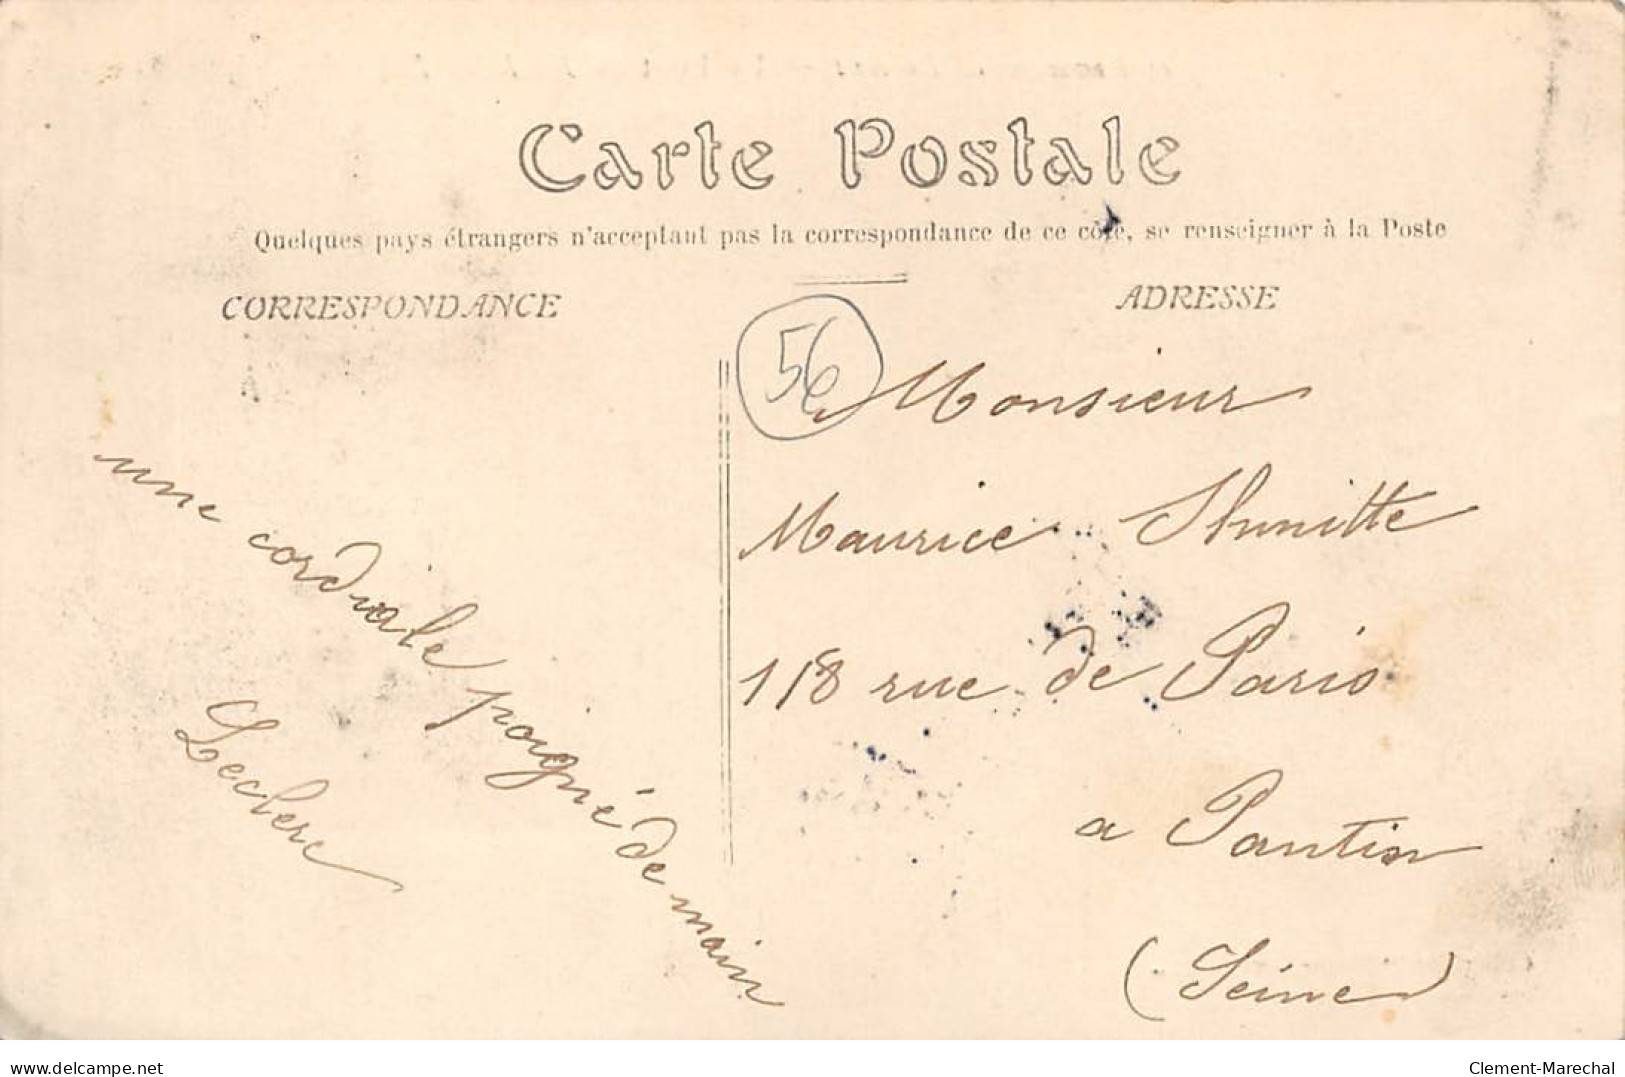 Carte Postale
Quelques pays étrangers n'acceptant pas la correspondance de ce côté, se renseigner à la Poste
CORRESPONDANCE
une cordiale poigné de main
Leclerc
ADRESSE
56
Monsieur
Maurice
118 rue de Paris
a Pantin
(Seine)
delcampe.net
Clement-Marechal